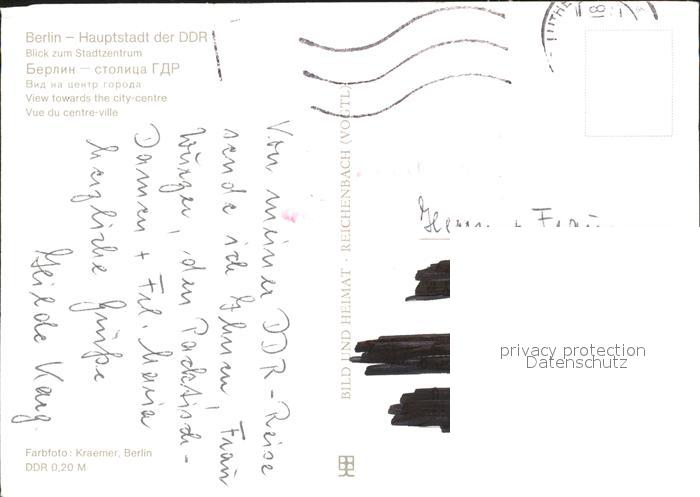 Berlin – Hauptstadt der DDR
Blick zum Stadtzentrum
Берлин – столица ГДР
Вид на центр города
View towards the city-centre
Vue du centre-ville
Von meiner DDR-Reise
sende ich Ihnen, Frau
Würger, den Packtisch-
Damen + Frl. Maria
herzliche Grüße
Hilde Karg.
BILD UND HEIMAT · REICHENBACH (VOGTL)
Herrn + Frau
privacy protection
Datenschutz
Farbfoto: Kraemer, Berlin
DDR 0,20 M